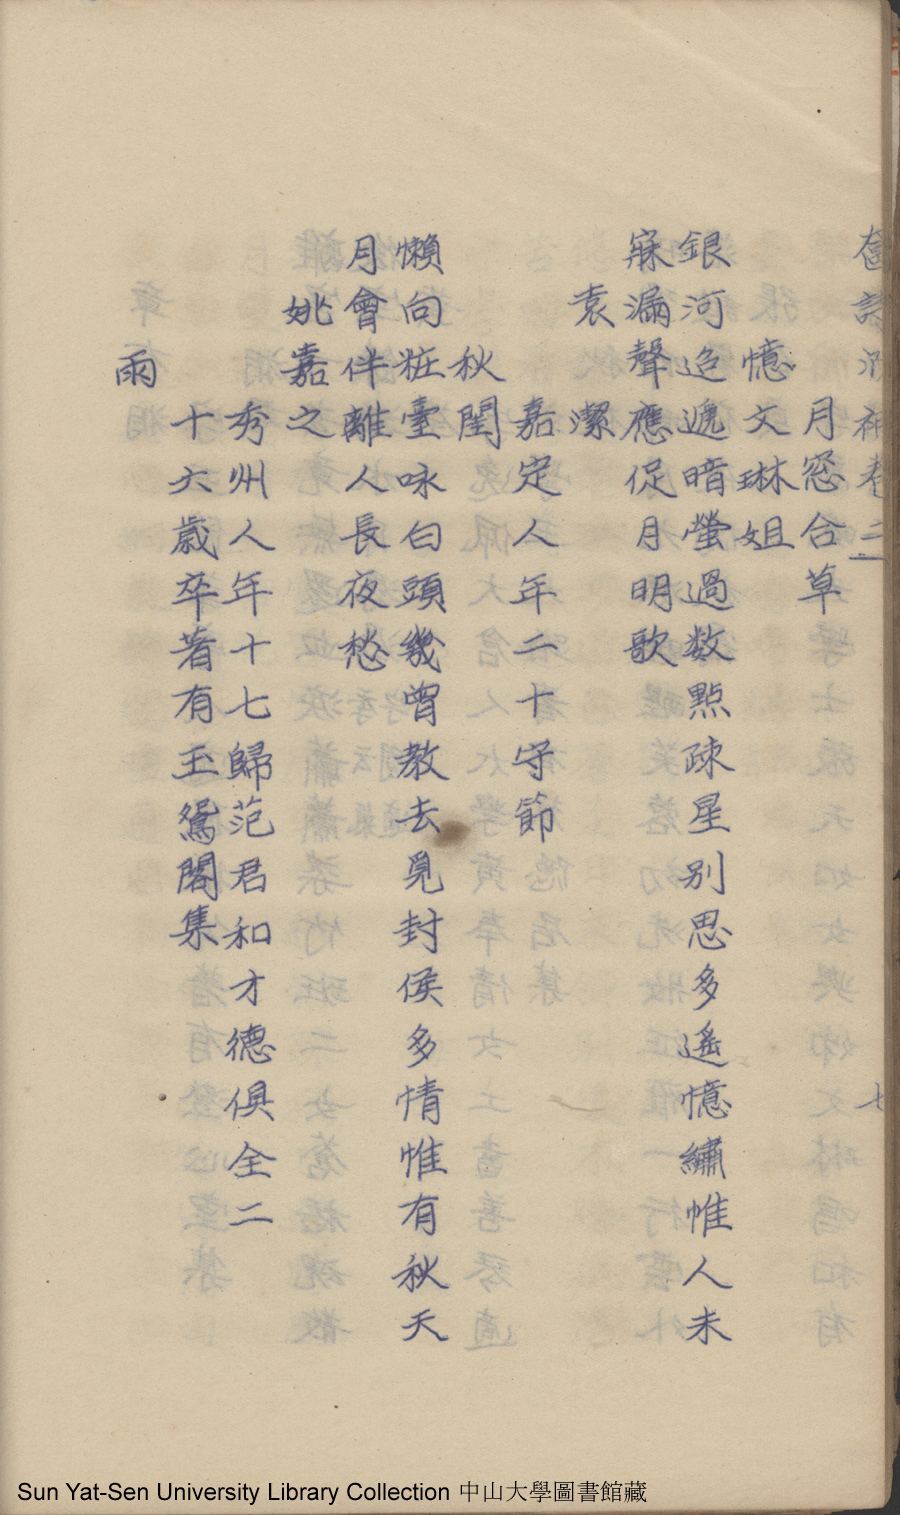 奩詩泐補卷二 七
月窓合草
憶文琳姐
銀河迢遞暗螢過数點疎星別思多遙憶繡帷人未
寐漏聲應促月明歌
袁潔
嘉定人年二十守節
秋閨
懶向粧臺咏白頭幾曾教去覓封侯多情惟有秋天
月會伴離人長夜愁
姚嘉之
秀州人年十七歸范君和才德俱全二
十六歳卒著有玉鴛閣集
雨
Sun Yat-Sen University Library Collection 中山大學圖書館藏